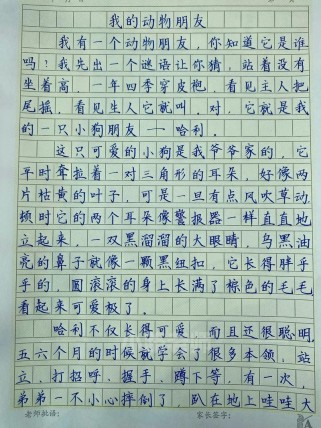 我的动物朋友
我有一个动物朋友，你知道它是谁
吗？我先出一个谜语让你猜，站着没有
坐着高，一年四季穿皮袍，看见主人把
尾摇，看见生人它就叫，对，它就是我
的一只小狗朋友——哈利。
这只可爱的小狗是我爷爷家的，它
平时耷拉着一对三角形的耳朵，好像两
片枯黄的叶子，可是一旦有点风吹草动，
顿时它的两个耳朵像警报器一样直直地
立起来，一双黑溜溜的大眼睛，乌黑油
亮的鼻子就像一颗黑纽扣，它长得胖乎
乎的，圆滚滚的身上长满了棕色的毛毛，
看起来可爱极了。
哈利不仅长得可爱，而且还很聪明，
五六个月的时候就学会了很多本领，站
立、打招呼、握手、蹲下等，有一次，
弟弟一不小心摔倒了，趴在地上哇哇大
老师批语：　家长签字：